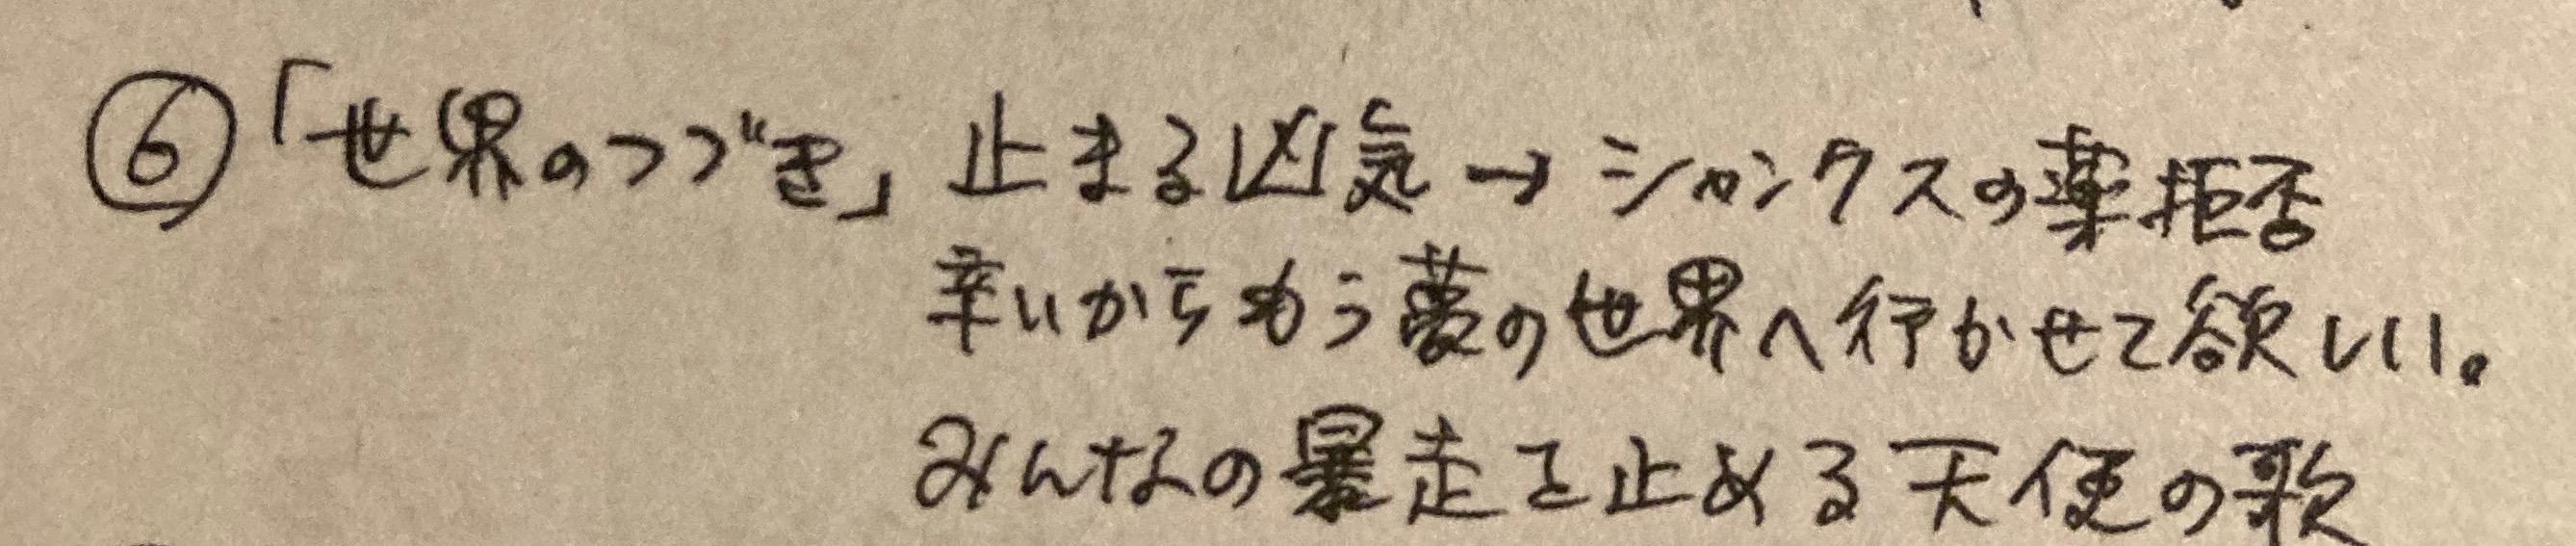 ⑥「世界のつづき」 止まる凶気→シャンクスの薬拒否
辛いからもう夢の世界へ行かせて欲しい。
みんなの暴走を止める天使の歌